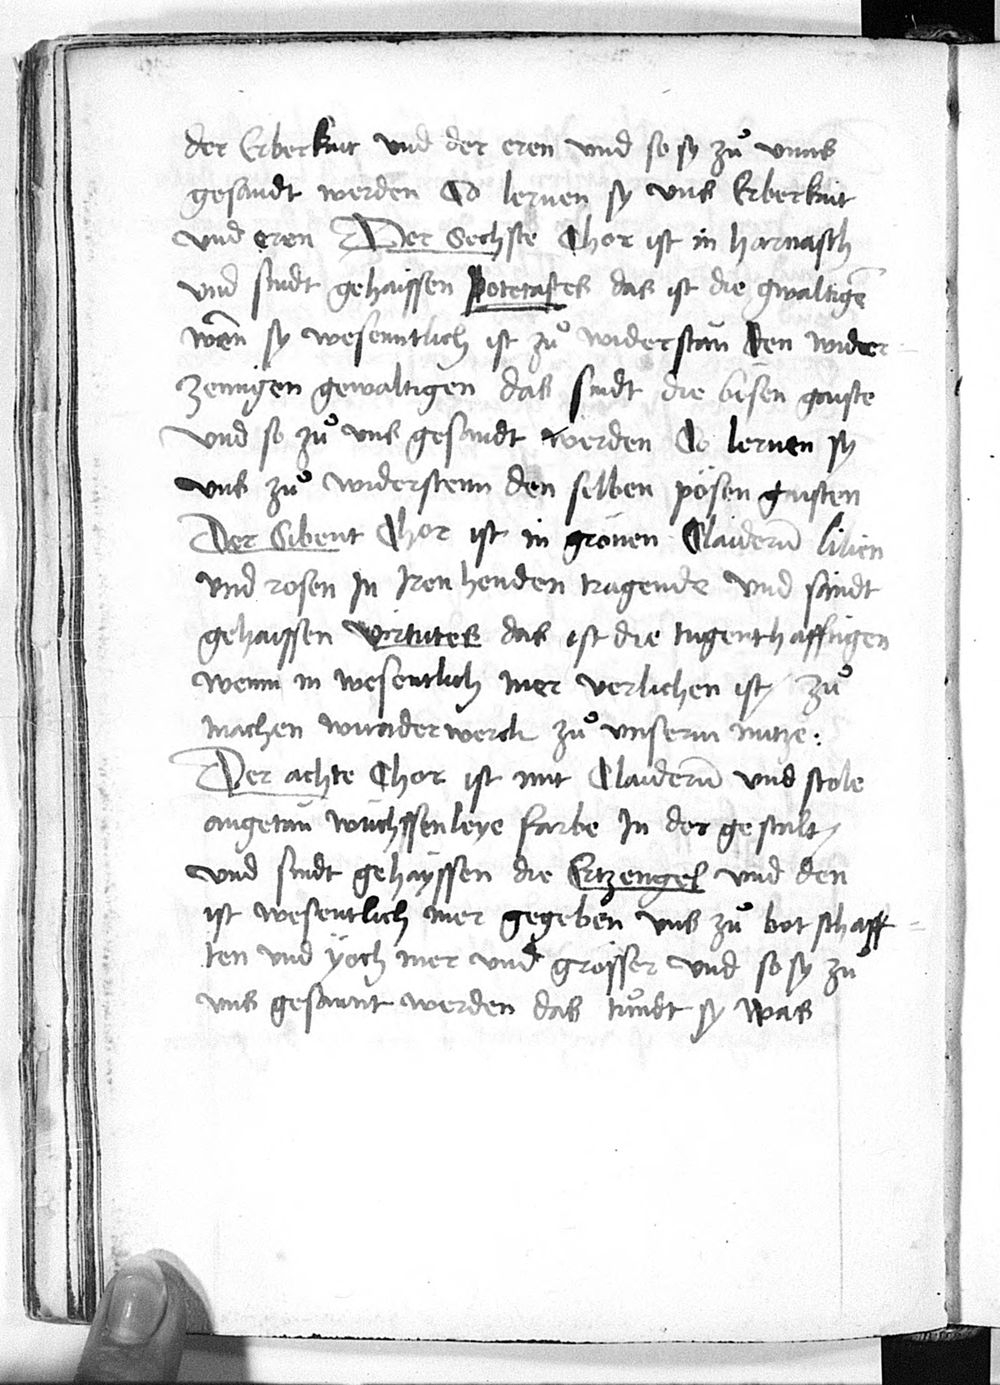 der Erberkait vnd der eren vnd so sy zů vnns
gesandt werden So lernen sy vns Erberkait
vnd eren Der Sechste Chor ist in harnasch
vnd sindt gehaissen Potetastes das ist die gwaltigē
wēn sy wesenntlich ist zů widerstan den wider-
zennigen gewaltigen das sindt die bisen gaiste
vnd so zů vns gesandt werden So lernen sy
vns zů widerstenn den selben pösen gaisten
Der Sibent Chor ist in grönen Claiderñ lilien
vnd rosen In Iren henden tragende vnd sindt
gehaissen virtutes das ist die tugenthafftigen
wenn in wesentlich mer verlichen ist / zů
machen wunderwerch zů vnserm nutze :
Der achte Chor ist mit Claiderñ vnd stole
angetan wüchssenleye farbe In der gestalt /
vnd sindt gehayssen die Ertzengel vnd den
ist wesentlich mer gegeben vns zů botschaff=
ten vnd yoch mer vnd grösser vnd so sy zů
vns gesannt werden das tůndt sy was